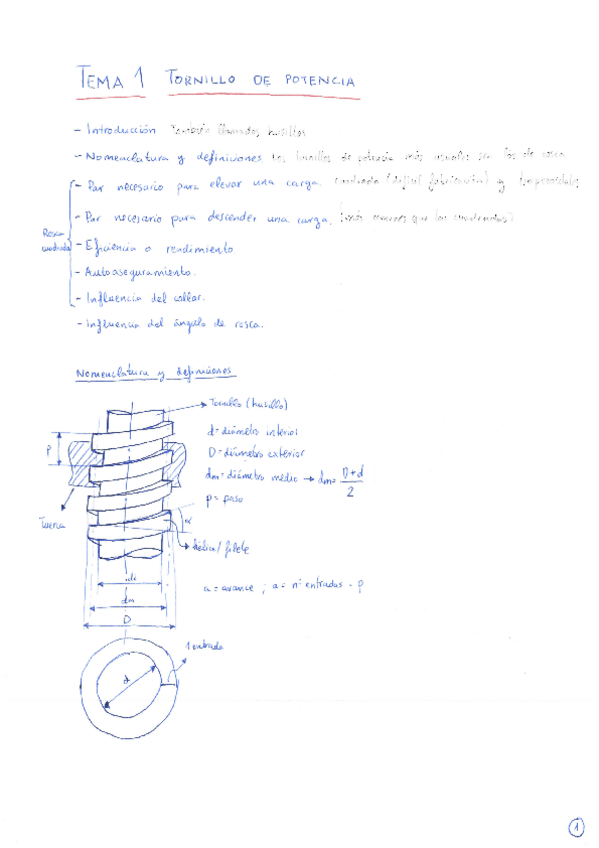 TEMA 1 TORNILLO DE POTENCIA
- Introducción También llamados husillos
- Nomenclatura y definiciones Los tornillos de potencia más usuales son los de rosca
- Par necesario para elevar una carga. cuadrada (difícil fabricación) y trapezoidales
- Par necesario para descender una carga. (más comunes que los cuadrados)
Rosca cuadrada
- Eficiencia o rendimiento
- Autoaseguramiento.
- Influencia del collar.
- Influencia del ángulo de rosca.
Nomenclatura y definiciones
Tornillo (husillo)
d = diámetro interior
D = diámetro exterior
dm = diámetro medio → dm = D+d / 2
p = paso
P
Tuerca
α
hélice / filete
a = avance ; a = nº entradas · p
di
dm
D
1 entrada
d
1